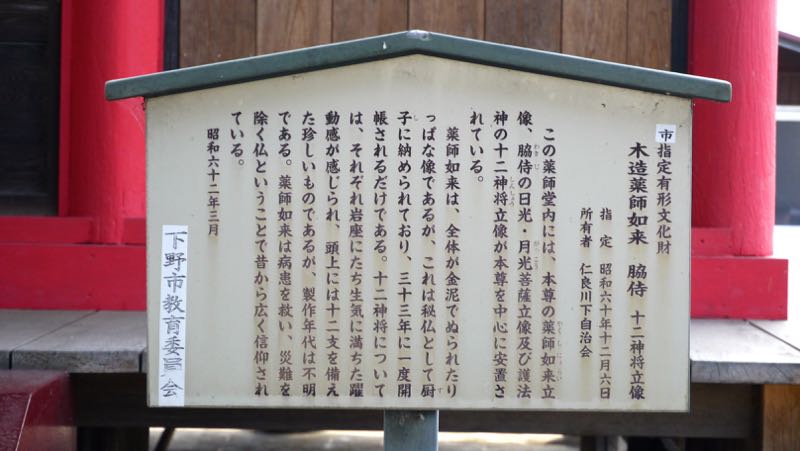 市指定有形文化財
木造薬師如来 脇侍 十二神将立像
指定 昭和六十年十二月六日
所有者 仁良川下自治会
この薬師堂内には、本尊の薬師如来立
像、脇侍の日光・月光菩薩立像及び護法
神の十二神将立像が本尊を中心に安置さ
れている。
薬師如来は、全体が金泥でぬられたり
っぱな像であるが、これは秘仏として厨
子に納められており、三十三年に一度開
帳されるだけである。十二神将について
は、それぞれ岩座にたち生気に満ちた躍
動感が感じられ、頭上には十二支を備え
た珍しいものであるが、製作年代は不明
である。薬師如来は病患を救い、災難を
除く仏ということで昔から広く信仰され
ている。
昭和六十二年三月
下野市教育委員会